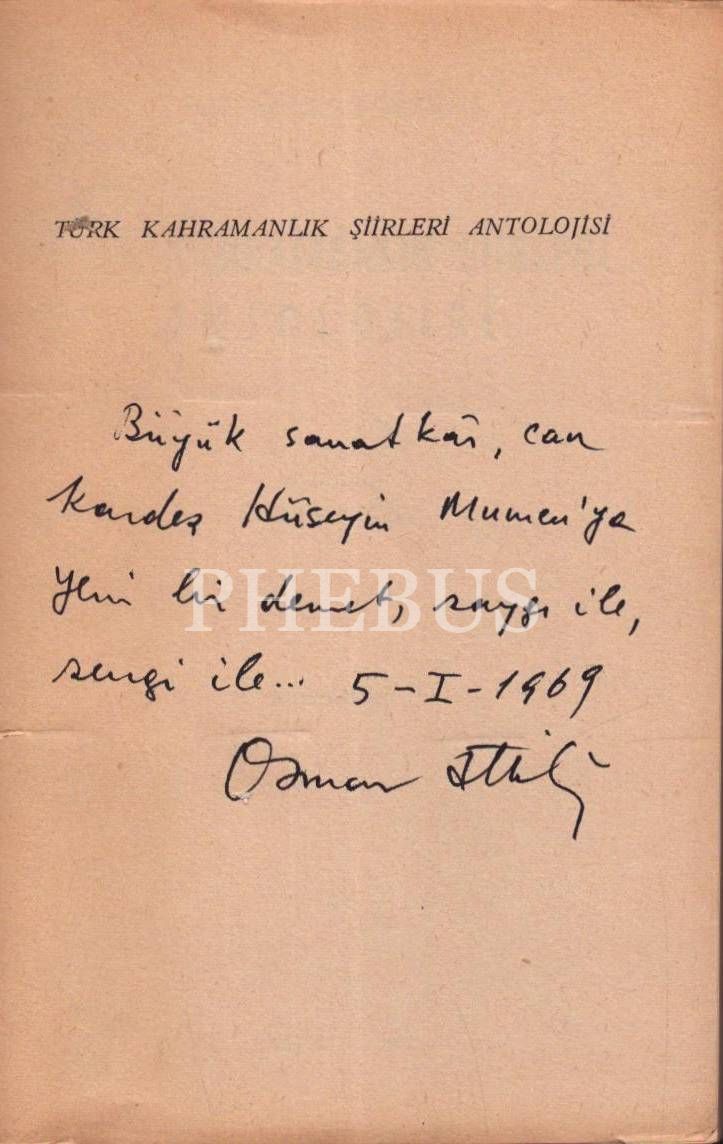 TÜRK KAHRAMANLIK ŞİİRLERİ ANTOLOJİSİ
Büyük sanatkâr, can
kardeş Hüseyin Mumcu'ya
yeni bir demet, saygı ile,
PHEBUS
sevgi ile... 5-I-1969
Osman Attilâ